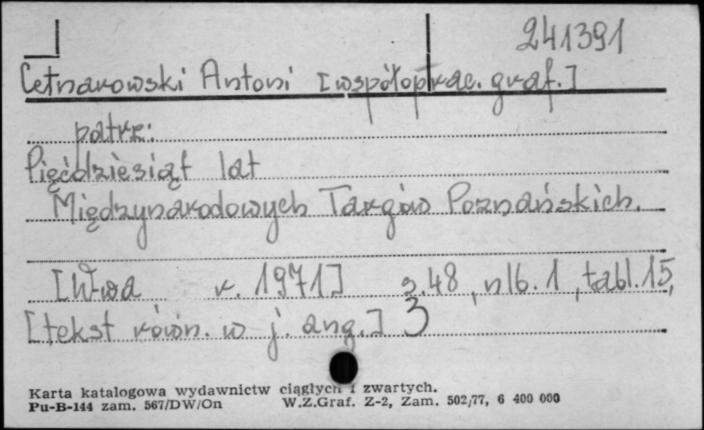 241391
Cetnarowski Antoni [współoprac. graf.]
patrz:
Pięćdziesiąt lat
Międzynarodowych Targów Poznańskich.
[W-wa r. 1971] s. 48, nlb. 1, tabl. 15,
[tekst równ. w j. ang.] 3
Karta katalogowa wydawnictw ciągłych i zwartych.
Pu-B-144 zam. 567/DW/On W.Z.Graf. Z-2, Zam. 502/77, 6 400 000